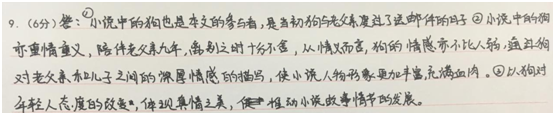 9.(6分)答:①小说中的狗也是本文的参与者,是当初狗与老父亲度过了送邮件的日子②小说中的狗
亦重情重义,陪伴老父亲九年,离别之时十分不舍,从情义而言,狗的情感亦不比人弱,通过狗
对老父亲和儿子之间的深厚情感的描写,使小说人物形象更加丰富充满血肉。③以狗对
年轻人态度的改变,体现真情之美,推动小说故事情节的发展。